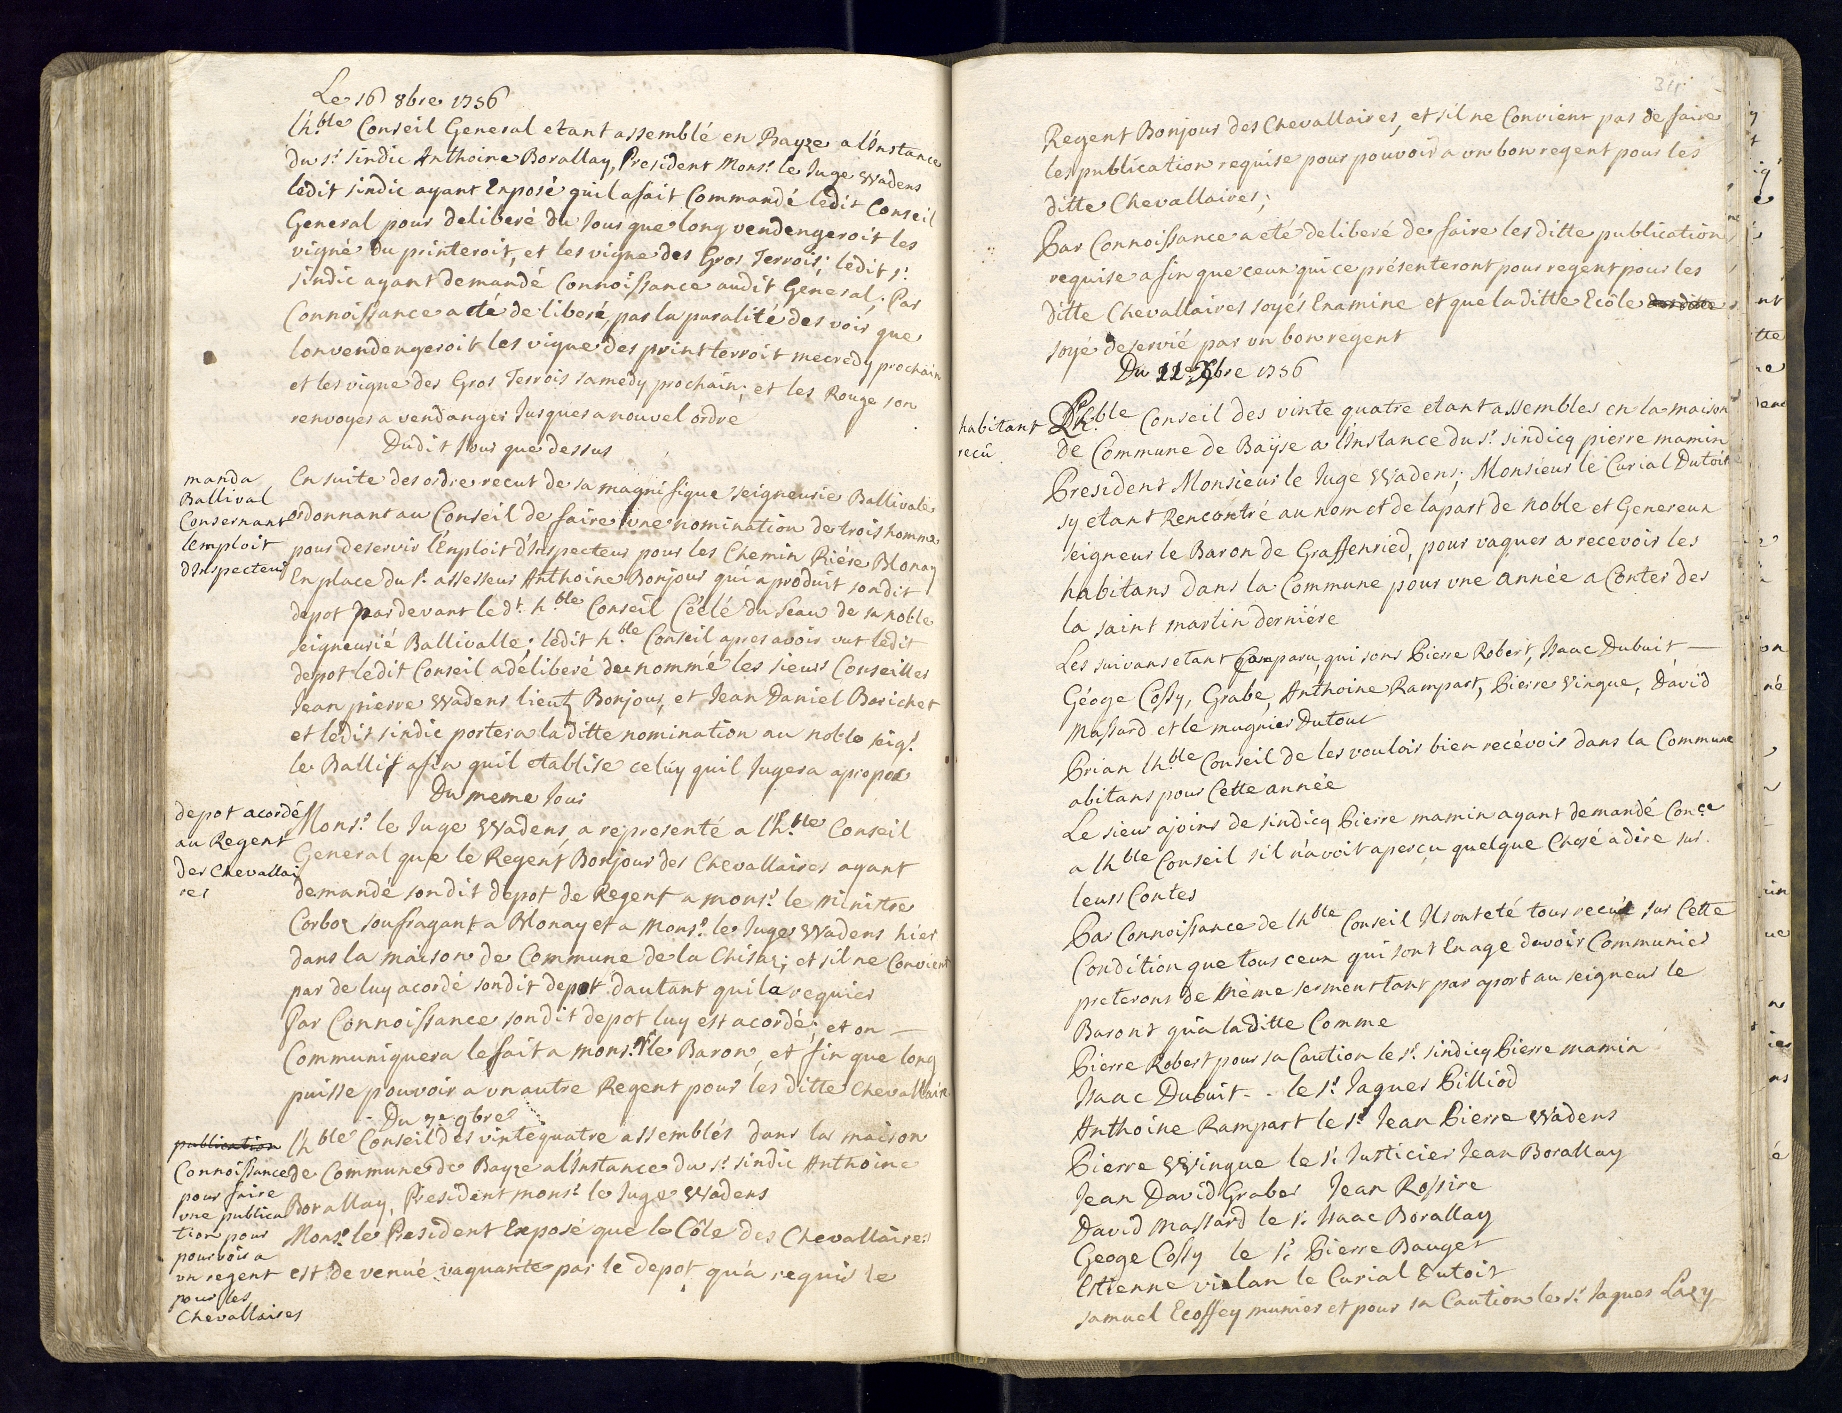 Le 16 8bre 1756
l'h.ble Conseil General etant assemblé en Bayze a l'Instance
du s.r sindic Anthoine Borallay, President Mons.r le Juge Wadens
ledit sindic ayant Exposé quil a fait Commandé ledit Conseil
General pour deliberé du Jour que long vendengeroit les
vigne du printeroit, et les vigne des Gros Terrois; ledit s.r
sindic ayant demandé Connoissance audit General; Par
Connoissance a eté de liberé, par la puralité des voix que
lon vendengeroit les vigne des print terroit mecredy prochain
et les vigne des Gros Terrois samedy prochain; et les Rouge son
renvoyer a vendanger Jusques a nouvel ordre
Dudit Jour que dessus
manda
Ballival
Consernant
lemploit
d'Inspecteur
En suite des ordre recut de sa magnifique seigneurie Ballivale
ordonnant au Conseil de faire une nomination de trois homme
pour deservir l'Enploit d'Inspecteur pour les Chemin Riére Blonay
En place du s.r assesseur Anthoine Bonjour qui a produit son dit
depot par devant le d.t h.ble Conseil Céelé du seau de sa noble
seigneurié Ballivalle; ledit h.ble Conseil apres avoir vut ledit
depot ledit Conseil a deliberé de nommé les sieurs Conseiller
Jean pierre Wadens lieut Bonjour, et Jean Daniel Borichet
et ledit sindic portera la ditte nomination au noble seig.r
le Ballif afin quil etablise celuy quil Jugera apropos
Du meme Jour
depot acordé
au Regent
des Chevallai
res
Mons.r le Juge Wadens, a representé a l'h.ble Conseil
General que le Regent Bonjour des Chevallaires ayant
demandé son dit depot de Regent a mons.r le ministre
Corboz soufragant a Blonay et a Mons.r le Juge Wadens hier
dans la maison de Commune de la Chisaz; et sil ne Convient
pas de luy acordé son dit depot dautant quil a requier
Par Connoissance son dit depot luy est acordé; et on —
Communiquera le fait a Mons.r le Baron, et fin que long
puisse pouvoir a un autre Regent pour les ditte Chevallaire
Du 7.e 9bre
publication
Connoissance
pour faire
une publica
tion pour
pourvoir a
un regent
pour les
Chevallaires
l'h.ble Conseil des vinte quatre assemblés dans la maison
de Commune de Bayze a l'Instance du s.r sindic Anthoine
Borallay, President mons.r le Juge Wadens
Mons.r le President Exposé que le Côle des Chevallaires
est de venué vaquante par le depot qu'a requis le
Regent Bonjour des Chevallaires, et sil ne Convient pas de faire
les publication requise pour pouvoir a un bon regent pour les
ditte Chevallaires;
Par Connoissance a eté deliberé de faire les ditte publication
requise afin que ceux qui ce présenteront pour regent pour les
ditte Chevallaires soyés Examine et que la ditte Ecôle des ditte
soyé deservié par un bon regent
Du 22 Xbre 1756
habitant
recû
L'h.ble Conseil des vinte quatre etant assembles en la maison
de Commune de Bayse a l'Instance du s.r sindicq pierre mamin
President Monsieur le Juge Wadens; Monsieur le Curial Dutoit
sy etant Rencontré au nom et de la part de noble et Genereux
seigneur le Baron de Graffenried, pour vaquer a recevoir les
habitans dans la Commune pour une année a Conter des
la saint martin derniére
Les suivans etant Comparu, qui sont Pierre Robert, Isaac Dubuit —
Géoge Cossy, Grabe, Anthoine Rampart, Pierre Vinque, David
Massard et le mugnier Dutour
Prian l'h.ble Conseil de les vouloir bien recévoir dans la Commune
abitans pour Cette année
Le sieur ajoint de sindicq Pierre mamin ayant demandé Con.ce
a l'h.ble Conseil s'il n'avoit aperçu quelque Chosé a dire sur
leurs Contes
Par Connoissance de l'h.ble Conseil Ils ont eté tous recus sur Cette
Condition que tous ceux qui sont En age davoir Communier
preterons de Même serment tant par aport au seigneur le
Baront qu'a la ditte Comme
Pierre Robert pour sa Caution le s.r sindicq Pierre mamin
Isaac Dubuit - - le s.r Jaques Pilliod
Anthoine Rampart le s.r Jean Pierre Wadens
Pierre Wvinque le s.r Justicier Jean Borallay
Jean David Graber Jean Rossire
David Massard le s.r Isaac Borallay
Geoge Cossy le s.r Pierre Bauget
Estienne vislan le Curial Dutoit
Samuel Ecoffey munier et pour sa Caution le s.r Jaques Lacy